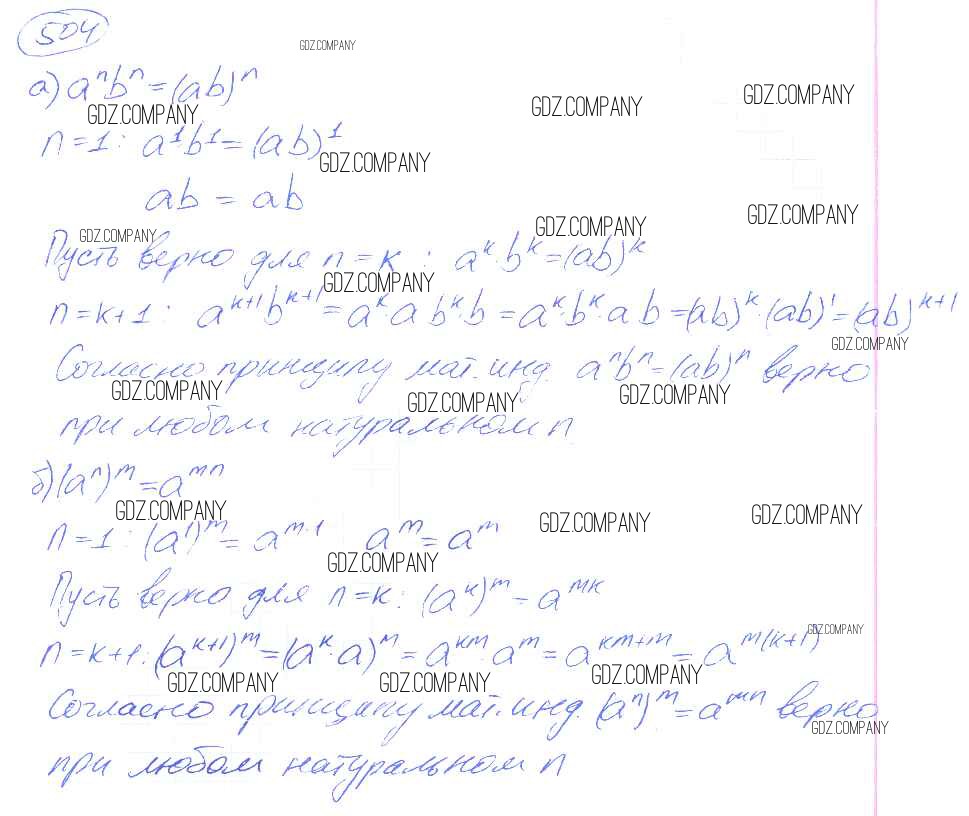 504
GDZ.COMPANY
а) aⁿbⁿ = (ab)ⁿ
GDZ.COMPANY GDZ.COMPANY GDZ.COMPANY
n = 1 : a¹b¹ = (ab)¹
GDZ.COMPANY
ab = ab
GDZ.COMPANY GDZ.COMPANY GDZ.COMPANY
Пусть верно для n = k : aᵏ·bᵏ = (ab)ᵏ
GDZ.COMPANY
n = k+1 : aᵏ⁺¹bᵏ⁺¹ = aᵏ·a bᵏ·b = aᵏ·bᵏ·a b = (ab)ᵏ·(ab)¹ = (ab)ᵏ⁺¹
GDZ.COMPANY
Согласно принципу мат. инд. aⁿbⁿ = (ab)ⁿ верно
GDZ.COMPANY GDZ.COMPANY GDZ.COMPANY
при любом натуральном n
б) (aⁿ)ᵐ = aᵐⁿ
GDZ.COMPANY GDZ.COMPANY GDZ.COMPANY
n = 1 : (a¹)ᵐ = aᵐ·¹ aᵐ = aᵐ
GDZ.COMPANY
Пусть верно для n = k : (aᵏ)ᵐ = aᵐᵏ
GDZ.COMPANY
n = k+1 : (aᵏ⁺¹)ᵐ = (aᵏ·a)ᵐ = aᵏᵐ·aᵐ = aᵏᵐ⁺ᵐ = aᵐ⁽ᵏ⁺¹⁾
GDZ.COMPANY GDZ.COMPANY GDZ.COMPANY
Согласно принципу мат. инд. (aⁿ)ᵐ = aᵐⁿ верно
GDZ.COMPANY
при любом натуральном n